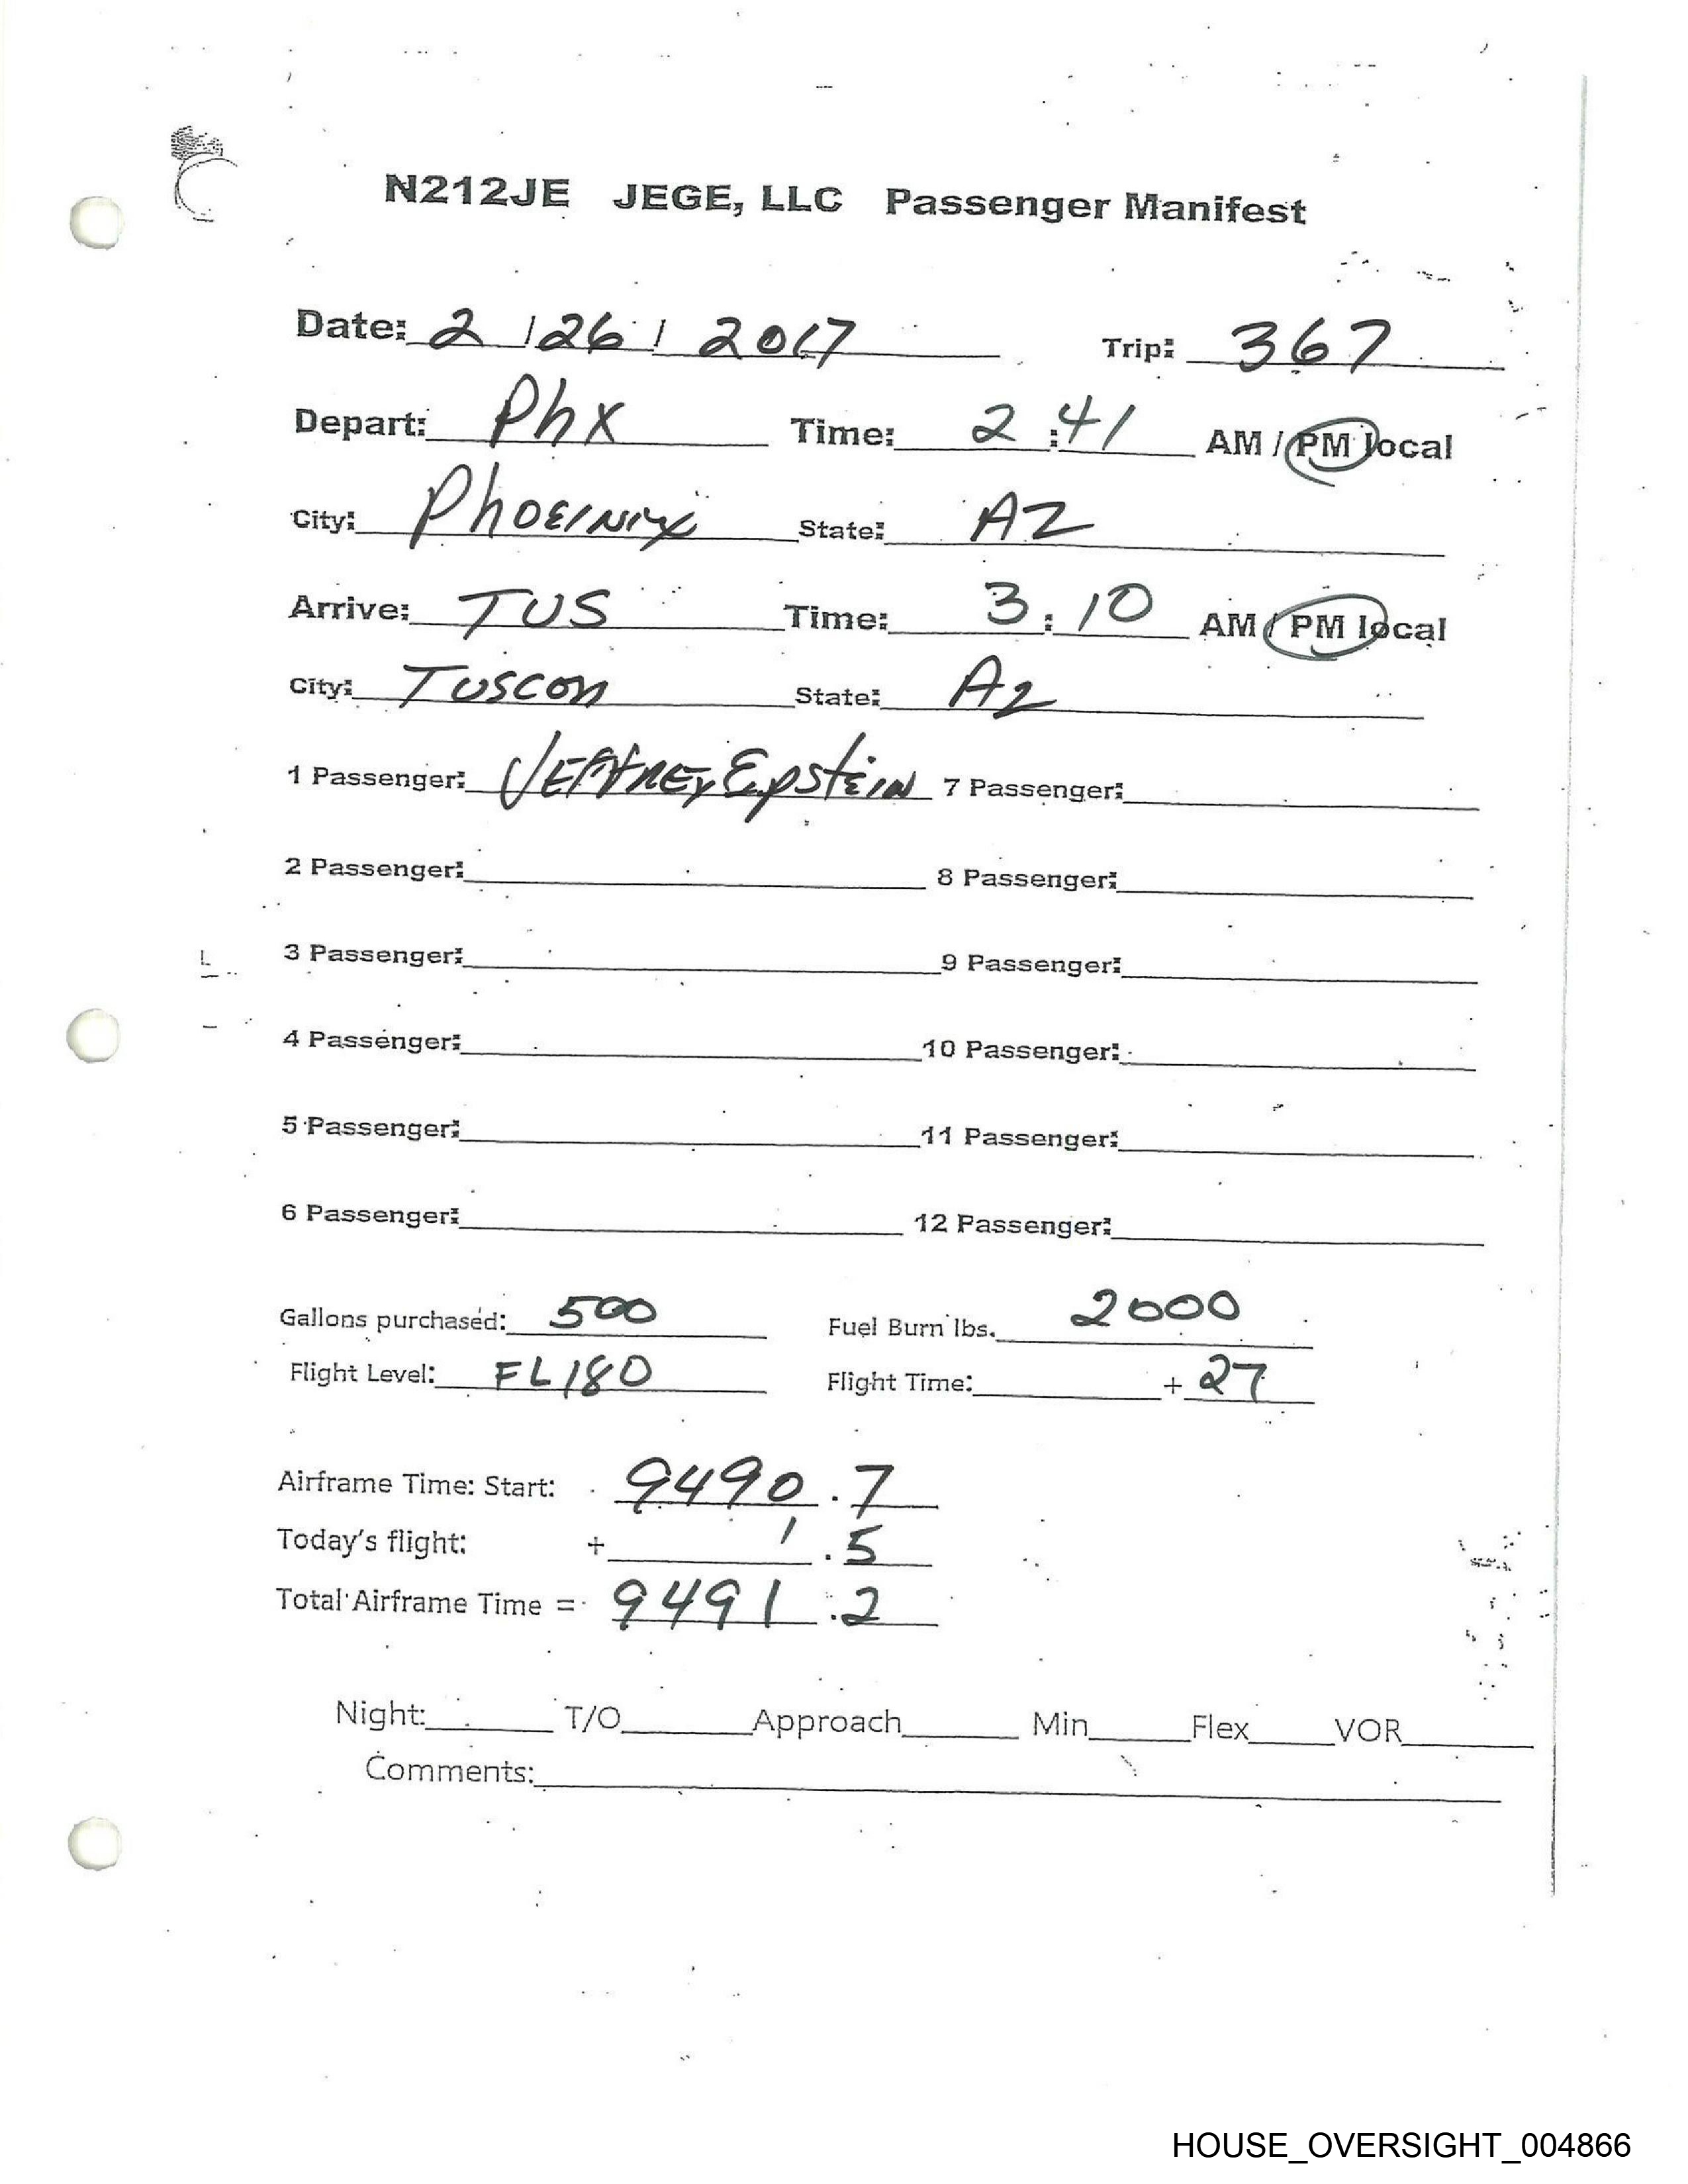 N212JE JEGE, LLC Passenger Manifest
Date: 2 / 26 / 2017 Trip: 367
Depart: Phx Time: 2:41 AM / PM local
City: State: AZ
Arrive: TUS Time: 3:10 AM / PM local
City: Tuscon State: AZ
1 Passenger: Jeffrey Epstein 7 Passenger:
2 Passenger: 8 Passenger:
3 Passenger: 9 Passenger:
4 Passenger: 10 Passenger:
5 Passenger: 11 Passenger:
6 Passenger: 12 Passenger:
Gallons purchased: 500 Fuel Burn lbs. 2000
Flight Level: FL180 Flight Time: + 27
Airframe Time: Start: 9490.7
Today's flight: + .5
Total Airframe Time = 9491.2
Night: T/O Approach Min Flex VOR
Comments:
HOUSE_OVERSIGHT_004866